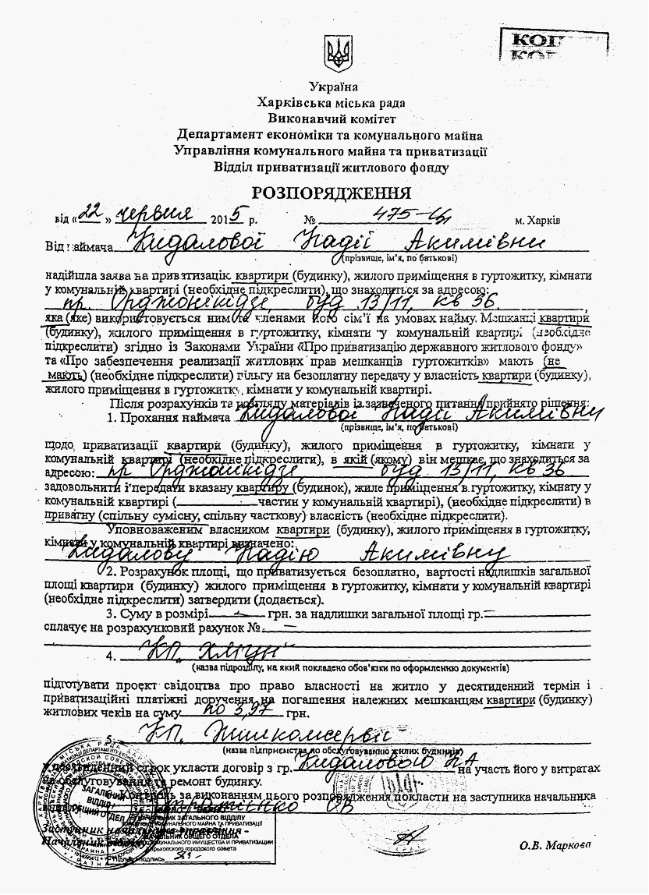 КОП
КОП
Україна
Харківська міська рада
Виконавчий комітет
Департамент економіки та комунального майна
Управління комунального майна та приватизації
Відділ приватизації житлового фонду
РОЗПОРЯДЖЕННЯ
від « 22 » червня 2015 р. № 475- м. Харків
Від наймача Кидалової Надії Акимівни
(прізвище, ім'я, по батькові)
надійшла заява на приватизацію квартири (будинку), жилого приміщення в гуртожитку, кімнати
у комунальній квартирі (необхідне підкреслити), що знаходиться за адресою:
пр. Орджонікідзе буд 13/11, кв 36,
яка (яке) використовується ним та членами його сім'ї на умовах найму. Мешканці квартири
(будинку), жилого приміщення в гуртожитку, кімнати у комунальній квартирі (необхідне
підкреслити) згідно із Законами України «Про приватизацію державного житлового фонду»
та «Про забезпечення реалізації житлових прав мешканців гуртожитків» мають (не
мають) (необхідне підкреслити) пільгу на безоплатну передачу у власність квартири (будинку),
жилого приміщення в гуртожитку, кімнати у комунальній квартирі.
Після розрахунків та розгляду матеріалів із зазначеного питання прийнято рішення:
1. Прохання наймача Кидалової Надії Акимівни
(прізвище, ім'я, по батькові)
щодо приватизації квартири (будинку), жилого приміщення в гуртожитку, кімнати у
комунальній квартирі (необхідне підкреслити), в якій (якому) він мешкає, що знаходиться за
адресою: пр Орджонікідзе буд 13/11, кв 36
задовольнити і передати вказану квартиру (будинок), жиле приміщення в гуртожитку, кімнату у
комунальній квартирі ( частин у комунальній квартирі), (необхідне підкреслити) в
приватну (спільну сумісну, спільну часткову) власність (необхідне підкреслити).
Уповноваженим власником квартири (будинку), жилого приміщення в гуртожитку,
кімнати у комунальній квартирі визначено:
Кидалову Надію Акимівну
2. Розрахунок площі, що приватизується безоплатно, вартості надлишків загальної
площі квартири (будинку) жилого приміщення в гуртожитку, кімнати у комунальній квартирі
(необхідне підкреслити) затвердити (додається).
3. Суму в розмірі — грн. за надлишки загальної площі гр.
сплачує на розрахунковий рахунок № —
4. КП.
(назва підрозділу, на який покладено обов'язки по оформленню документів)
підготувати проект свідоцтва про право власності на житло у десятиденний термін і
приватизаційні платіжні доручення на погашення належних мешканцям квартири (будинку)
житлових чеків на суму по 3,97 грн.
5. КП. Жилкомсервіс
(назва підприємства по обслуговуванню жилих будинків)
У строк укласти договір з гр. Кидаловою НА на участь його у витратах
на обслуговування та ремонт будинку.
Контроль за виконанням цього розпорядження покласти на заступника начальника
ЗАГАЛЬНИЙ
ВІДДІЛ
Заступник начальника управління -
Начальник відділу
О.В. Маркова